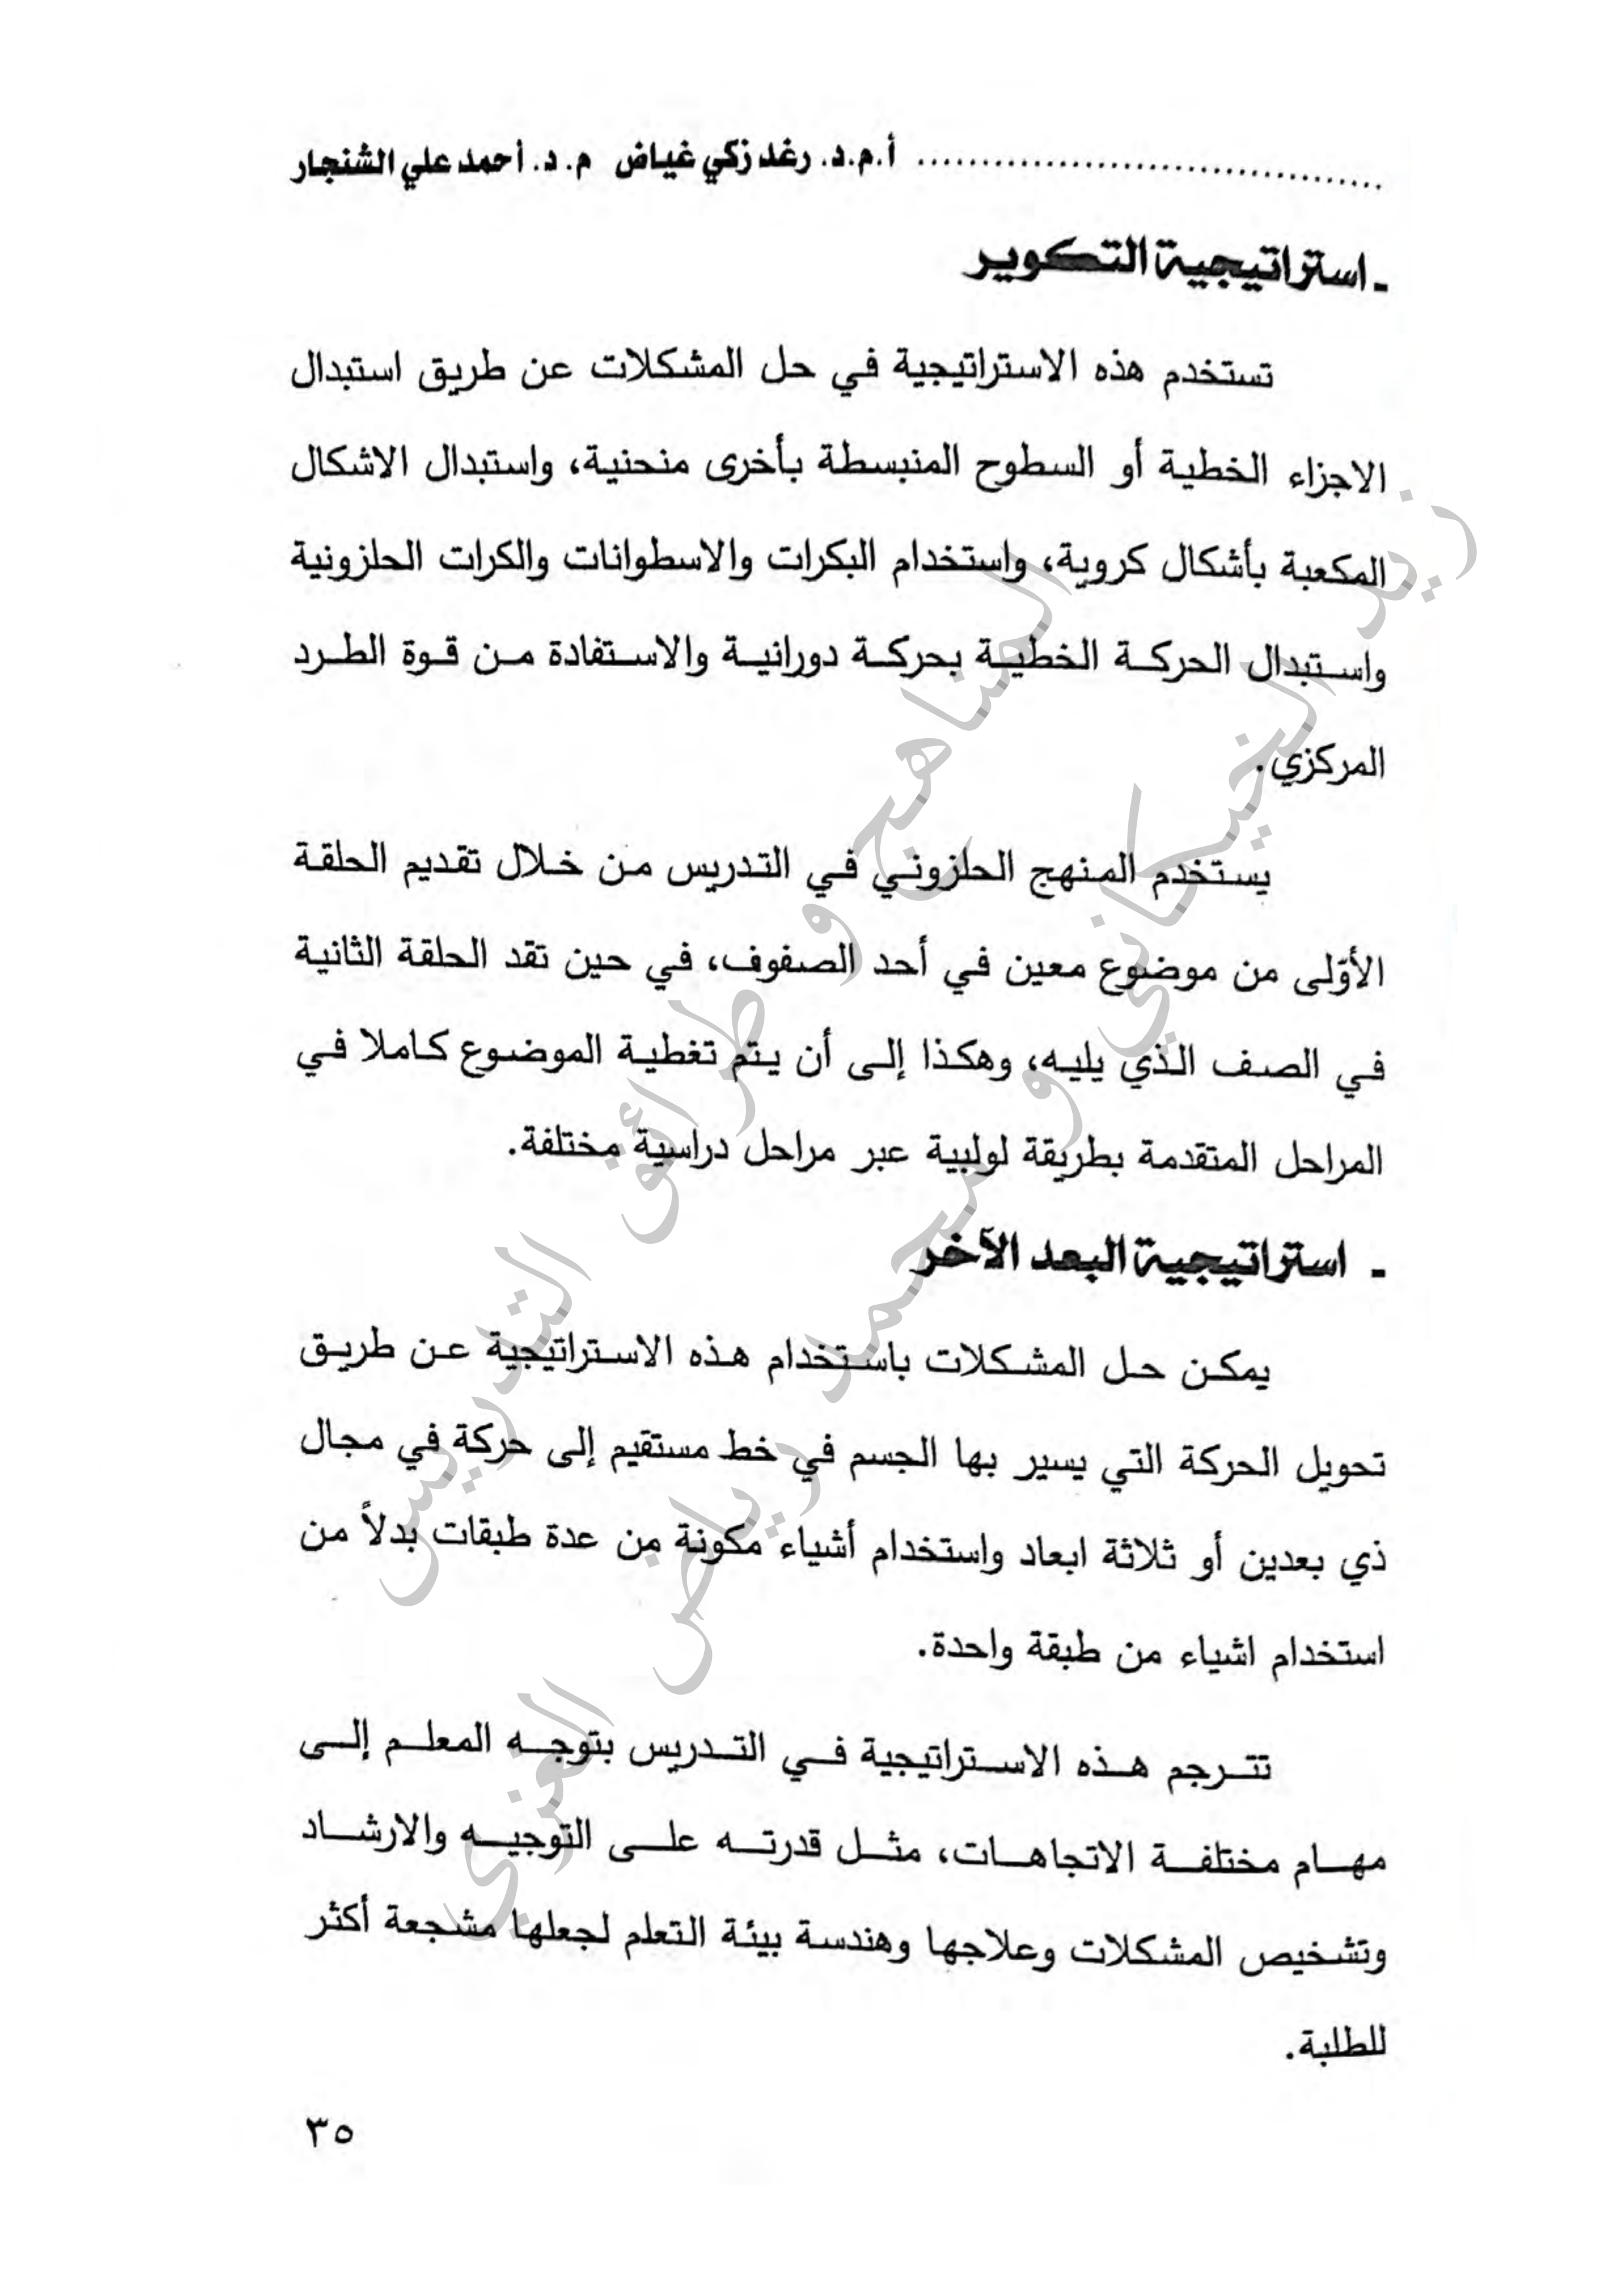 ................................ أ.م.د. رغد زكي غياض م. د. أحمد علي الشنجار
- استراتيجية التكوير
تستخدم هذه الاستراتيجية في حل المشكلات عن طريق استبدال
الاجزاء الخطية أو السطوح المنبسطة بأخرى منحنية، واستبدال الاشكال
المكعبة بأشكال كروية، واستخدام البكرات والاسطوانات والكرات الحلزونية
واستبدال الحركة الخطية بحركة دورانية والاستفادة من قوة الطرد
المركزي.
يستخدم المنهج الحلزوني في التدريس من خلال تقديم الحلقة
الأوّلى من موضوع معين في أحد الصفوف، في حين تقد الحلقة الثانية
في الصف الذي يليه، وهكذا إلى أن يتم تغطية الموضوع كاملا في
المراحل المتقدمة بطريقة لولبية عبر مراحل دراسية مختلفة.
- استراتيجية البعد الآخر
يمكن حل المشكلات باستخدام هذه الاستراتيجية عن طريق
تحويل الحركة التي يسير بها الجسم في خط مستقيم إلى حركة في مجال
ذي بعدين أو ثلاثة ابعاد واستخدام أشياء مكونة من عدة طبقات بدلاً من
استخدام اشياء من طبقة واحدة.
تترجم هذه الاستراتيجية في التدريس بتوجه المعلم إلى
مهام مختلفة الاتجاهات، مثل قدرته على التوجيه والارشاد
وتشخيص المشكلات وعلاجها وهندسة بيئة التعلم لجعلها مشجعة أكثر
للطلبة.
٣٥
المناهج و طرائق التدريس
زيد الخيكاني و محمد رياض العنزي